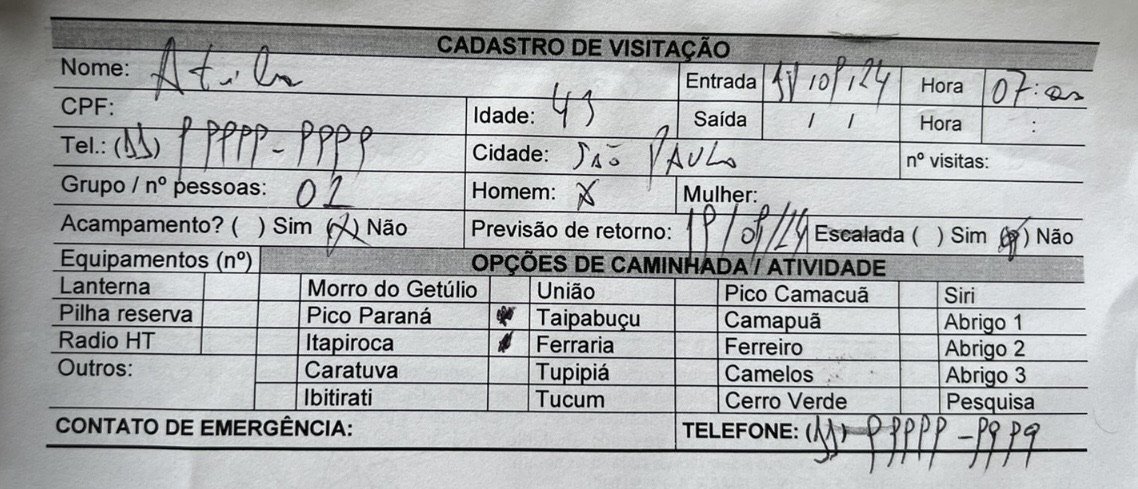 CADASTRO DE VISITAÇÃO
Nome: Atila Entrada Hora 07:00
CPF: Idade: 43 Saída / / Hora :
Tel.: (11) 9 9999-9999 Cidade: São PAULo nº visitas:
Grupo / nº pessoas: 02 Homem: X Mulher:
Acampamento? ( ) Sim (X) Não Previsão de retorno: 19/09/24 Escalada ( ) Sim (X) Não
Equipamentos (nº) OPÇÕES DE CAMINHADA / ATIVIDADE
Lanterna Morro do Getúlio União Pico Camacuã Siri
Pilha reserva Pico Paraná Taipabuçu Camapuã Abrigo 1
Radio HT Itapiroca Ferraria Ferreiro Abrigo 2
Outros: Caratuva Tupipiá Camelos Abrigo 3
Ibitirati Tucum Cerro Verde Pesquisa
CONTATO DE EMERGÊNCIA: TELEFONE: (11) 99999-9999